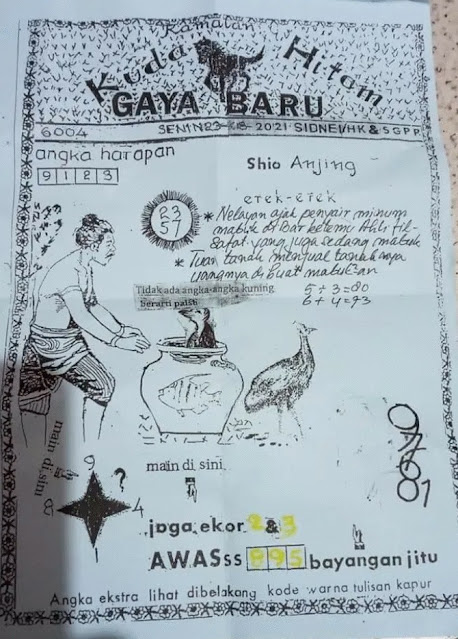 Ramalan
Kuda Hitam
GAYA BARU
6004 SENIN 23-8-2021 SIDNEI/HK & SGPP
angka harapan
9 1 2 3
Shio Anjing
23
57
etek-etek
* Nelayan ajak penyair minum
mabuk di Bar ketemu Ahli fil-
safat yang juga sedang mabuk
* Tuan tanah menjual tanahnya
uangnya di buat mabuk-an
Tidak ada angka-angka kuning
berarti palsu
5 + 3 = 80
6 + 4 = 93
main di sini
9
?
8
4
1
main di sini
jaga ekor 2 & 3
AWASss 895 bayangan jitu
Angka ekstra lihat dibelakang kode warna tulisan kapur